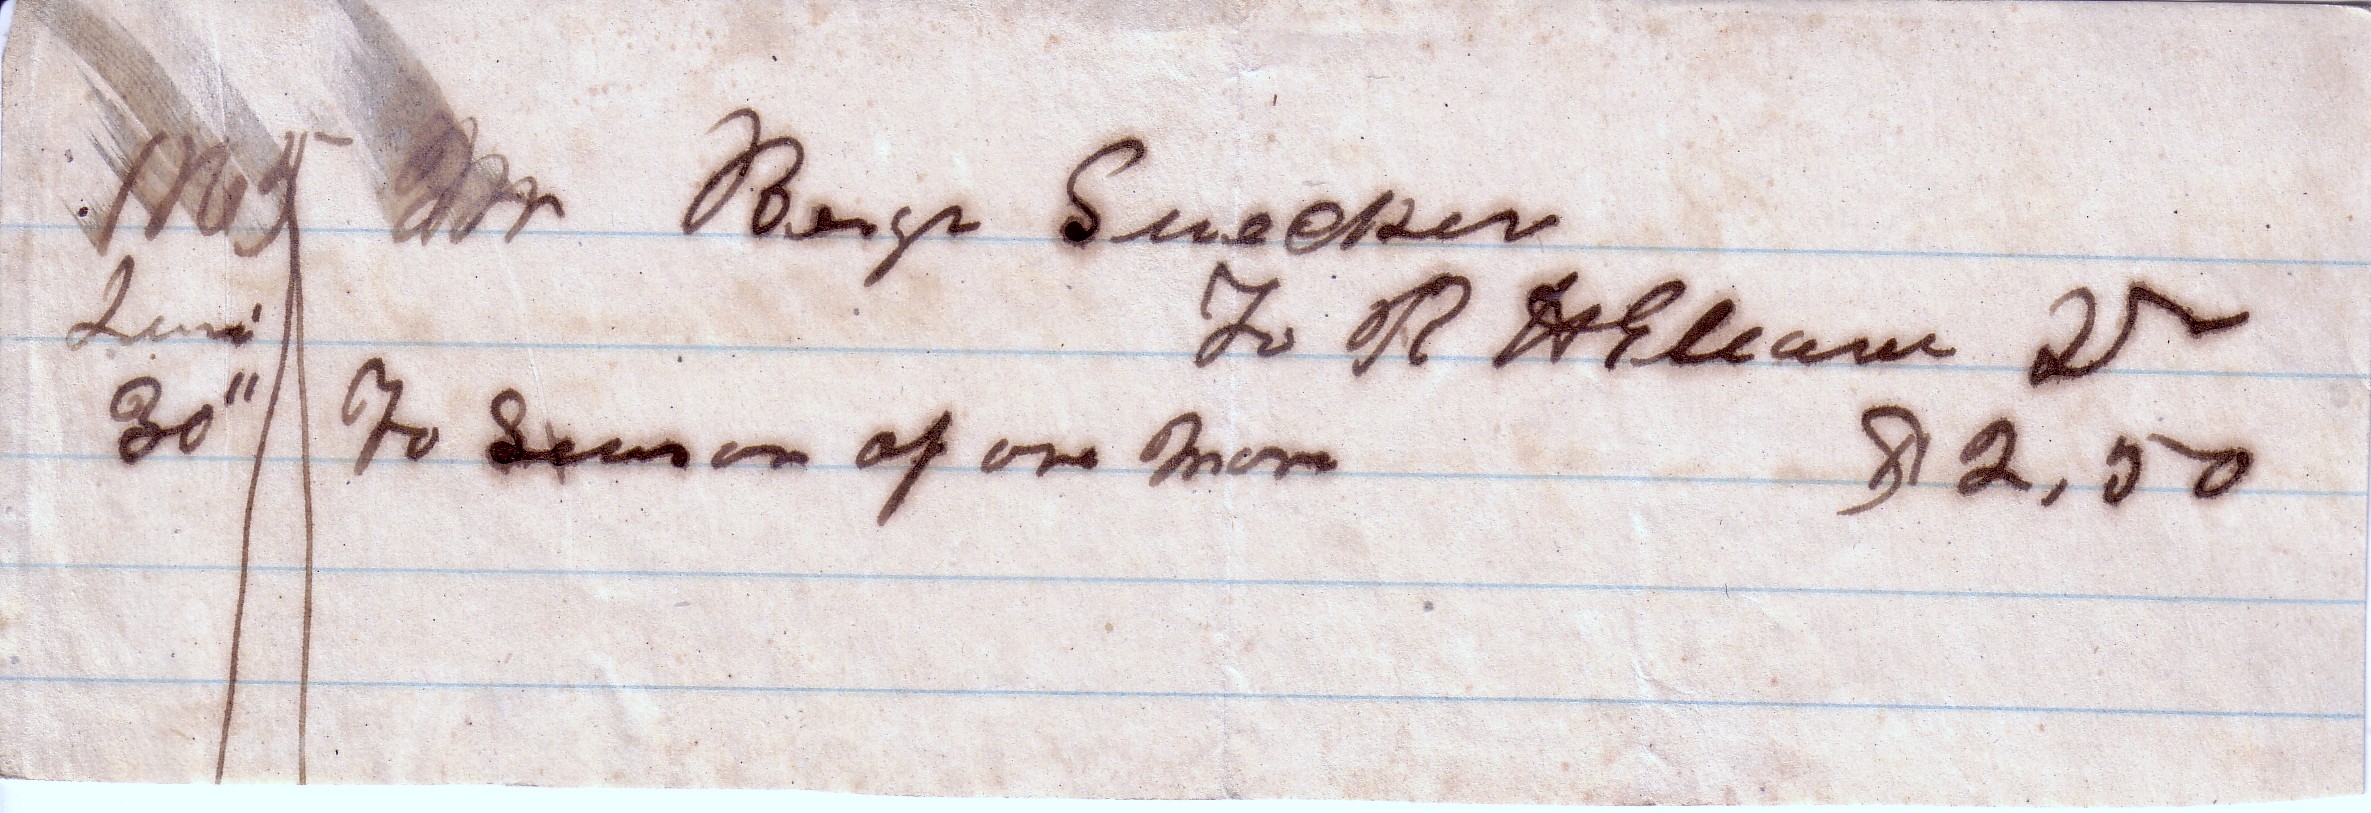 Mr Benj Snecker
June To R H Gleam Dr
30" To Season of one Mare $2,50